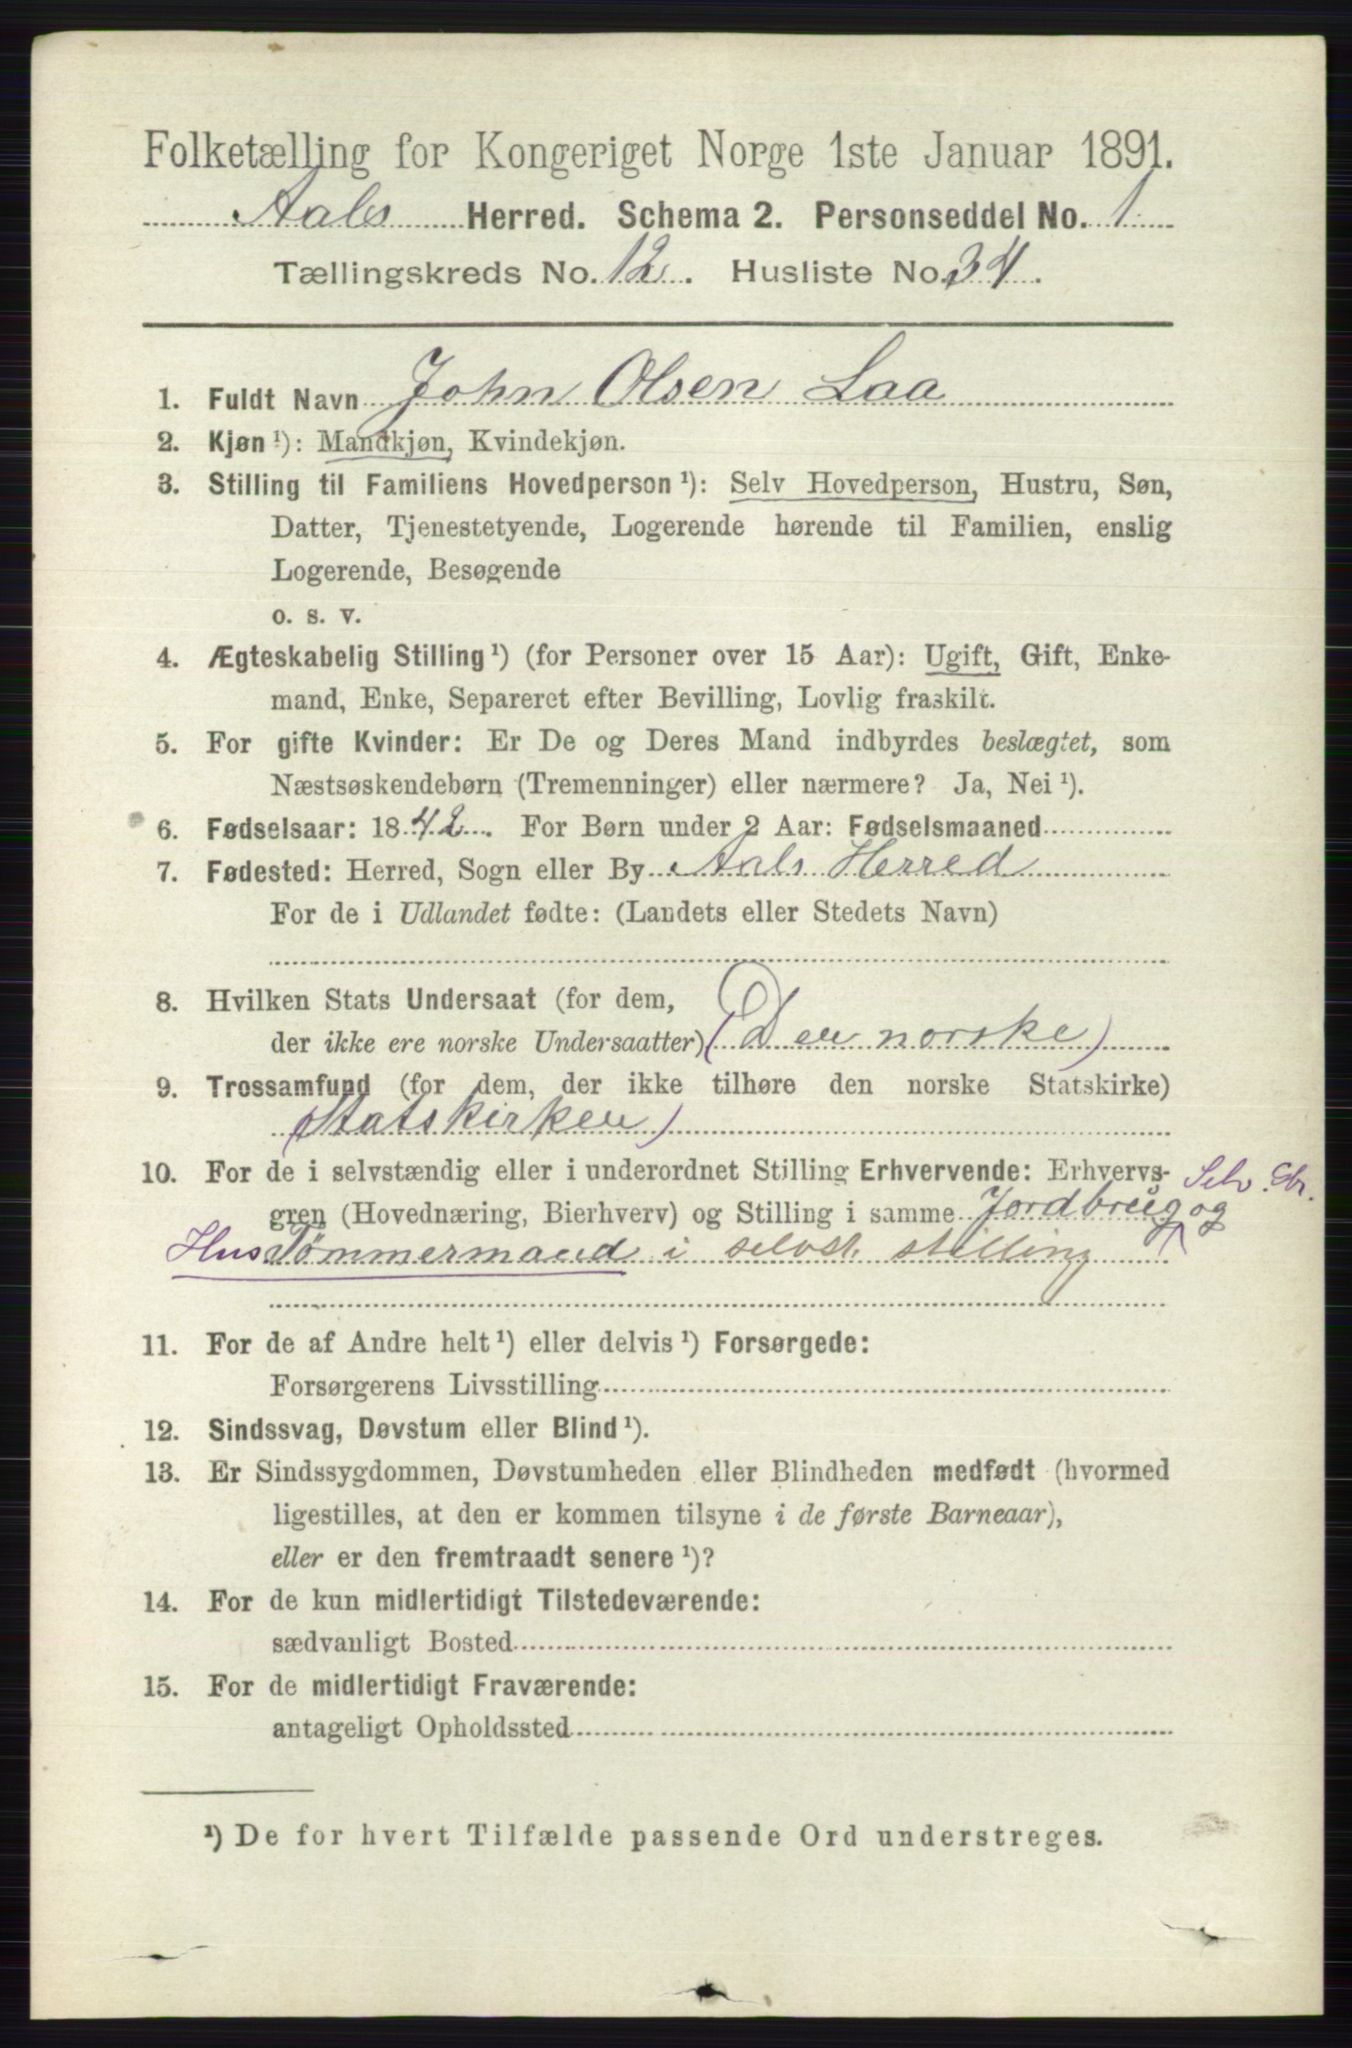 Folketælling for Kongeriget Norge 1ste Januar 1891.
Aals Herred. Schema 2. Personseddel No. 1.
Tællingskreds No. 12. Husliste No. 34.
1. Fuldt Navn John Olsen Laa
2. Kjøn ¹): Mandkjøn, Kvindekjøn.
3. Stilling til Familiens Hovedperson ¹): Selv Hovedperson, Hustru, Søn,
Datter, Tjenestetyende, Logerende hørende til Familien, enslig
Logerende, Besøgende
o. s. v.
4. Ægteskabelig Stilling ¹) (for Personer over 15 Aar): Ugift, Gift, Enke-
mand, Enke, Separeret efter Bevilling, Lovlig fraskilt.
5. For gifte Kvinder: Er De og Deres Mand indbyrdes beslægtet, som
Næstsøskendebørn (Tremenninger) eller nærmere? Ja, Nei ¹).
6. Fødselsaar: 1842. For Børn under 2 Aar: Fødselsmaaned
7. Fødested: Herred, Sogn eller By Aals Herred
For de i Udlandet fødte: (Landets eller Stedets Navn)
8. Hvilken Stats Undersaat (for dem,
der ikke ere norske Undersaatter) (Den norske)
9. Trossamfund (for dem, der ikke tilhøre den norske Statskirke)
(Statskirken)
10. For de i selvstændig eller i underordnet Stilling Erhvervende: Erhvervs- Selv. Gbr.
gren (Hovednæring, Bierhverv) og Stilling i samme Jordbrug og
Hus Tömmermand i selvst. stilling
11. For de af Andre helt ¹) eller delvis ¹) Forsørgede:
Forsørgerens Livsstilling
12. Sindssvag, Døvstum eller Blind ¹).
13. Er Sindssygdommen, Døvstumheden eller Blindheden medfødt (hvormed
ligestilles, at den er kommen tilsyne i de første Barneaar),
eller er den fremtraadt senere ¹)?
14. For de kun midlertidigt Tilstedeværende:
sædvanligt Bosted
15. For de midlertidigt Fraværende:
antageligt Opholdssted
¹) De for hvert Tilfælde passende Ord understreges.